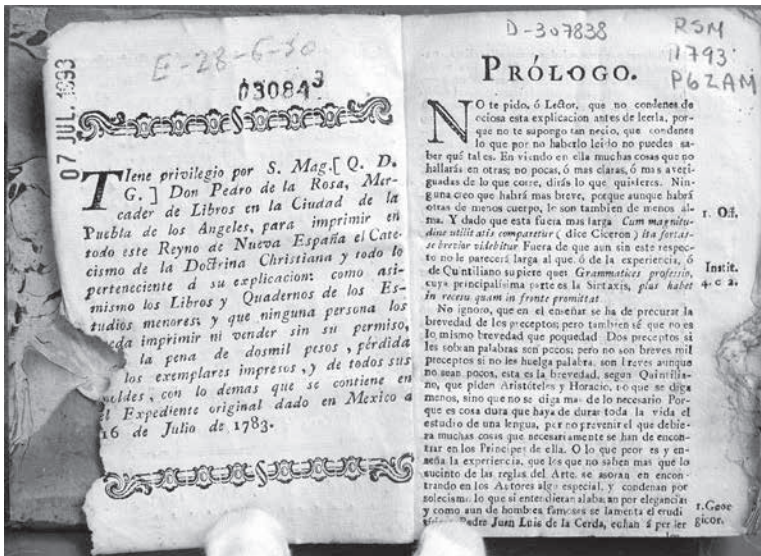 07 JUL. 1993
E-28-6-30
030843
TIene privilegio por S. Mag.[ Q. D.
G. ] Don Pedro de la Rosa, Mer-
cader de Libros en la Ciudad de la
Puebla de los Angeles, para imprimir en
todo este Reyno de Nueva España el Cate-
cismo de la Doctrina Christiana y todo lo
perteneciente á su explicacion: como asi-
mismo los Libros y Quadernos de los Es-
tudios menores; y que ninguna persona los
imprimir ni vender sin su permiso,
la pena de dosmil pesos, pérdida
los exemplares impresos, y de todos sus
con lo demas que se contiene en
Expediente original dado en Mexico a
16 de Julio de 1783.
D-307838
RSM
1793
P6ZAM
PRÓLOGO.
NO te pido, ó Lector, que no condenes de
ociosa esta explicacion antes de leerla, por-
que no te supongo tan necio, que condenes
lo que por no haberlo leido no puedes sa-
ber qué tal es. En viendo en ella muchas cosas que no
hallarás en otras; no pocas, ó mas claras, ó mas averi-
guadas de lo que corre, dirás lo que quisieres. Nin-
guna creo que habrá mas breve, porque aunque habrá
otras de menos cuerpo, le son tambien de menos al-
ma. Y dado que esta fuera mas larga Cum magnitu-
dine utilitatis comparetur ( dice Ciceron ) ita fortas-
se brevior videbitur Fuera de que aun sin este respec-
to no le parecerá larga al que, ó de la experiencia, ó
de Quintiliano supiere que: Grammatices professio,
cuya principalísima parte es la Sintaxis, plus habet
in recesu quam in fronte promittat.
r. Off.
Instit.
4. c 2.
No ignoro, que en el enseñar se ha de procurar la
brevedad de los preceptos; pero tambien sé que no es
lo mismo brevedad que poquedad Dos preceptos si
les sobran palabras son pocos; pero no son breves mil
preceptos si no les huelga palabra, son breves aunque
no sean pocos, esta es la brevedad, segun Quintilia-
no, que piden Aristóteles y Horacio, no que se diga
menos, sino que no se diga mas de lo necesario Por-
que es cosa dura que haya de durar toda la vida el
estudio de una lengua, por no prevenir el que debie-
ra muchas cosas que necesariamente se han de encon-
trar en los Principes de ella. O lo que peor es y en-
seña la experiencia, que los que no saben mas que lo
sucinto de las reglas del Arte, se asoran en encon-
trando en los Autores algo especial, y condenan por
solecismo lo que si entendieran alabaran por elegancias
y como aun de hombres famosos se lamenta el erudi
Padre Juan Luis de la Cerda, echan á perder
r.Geor
gicor.